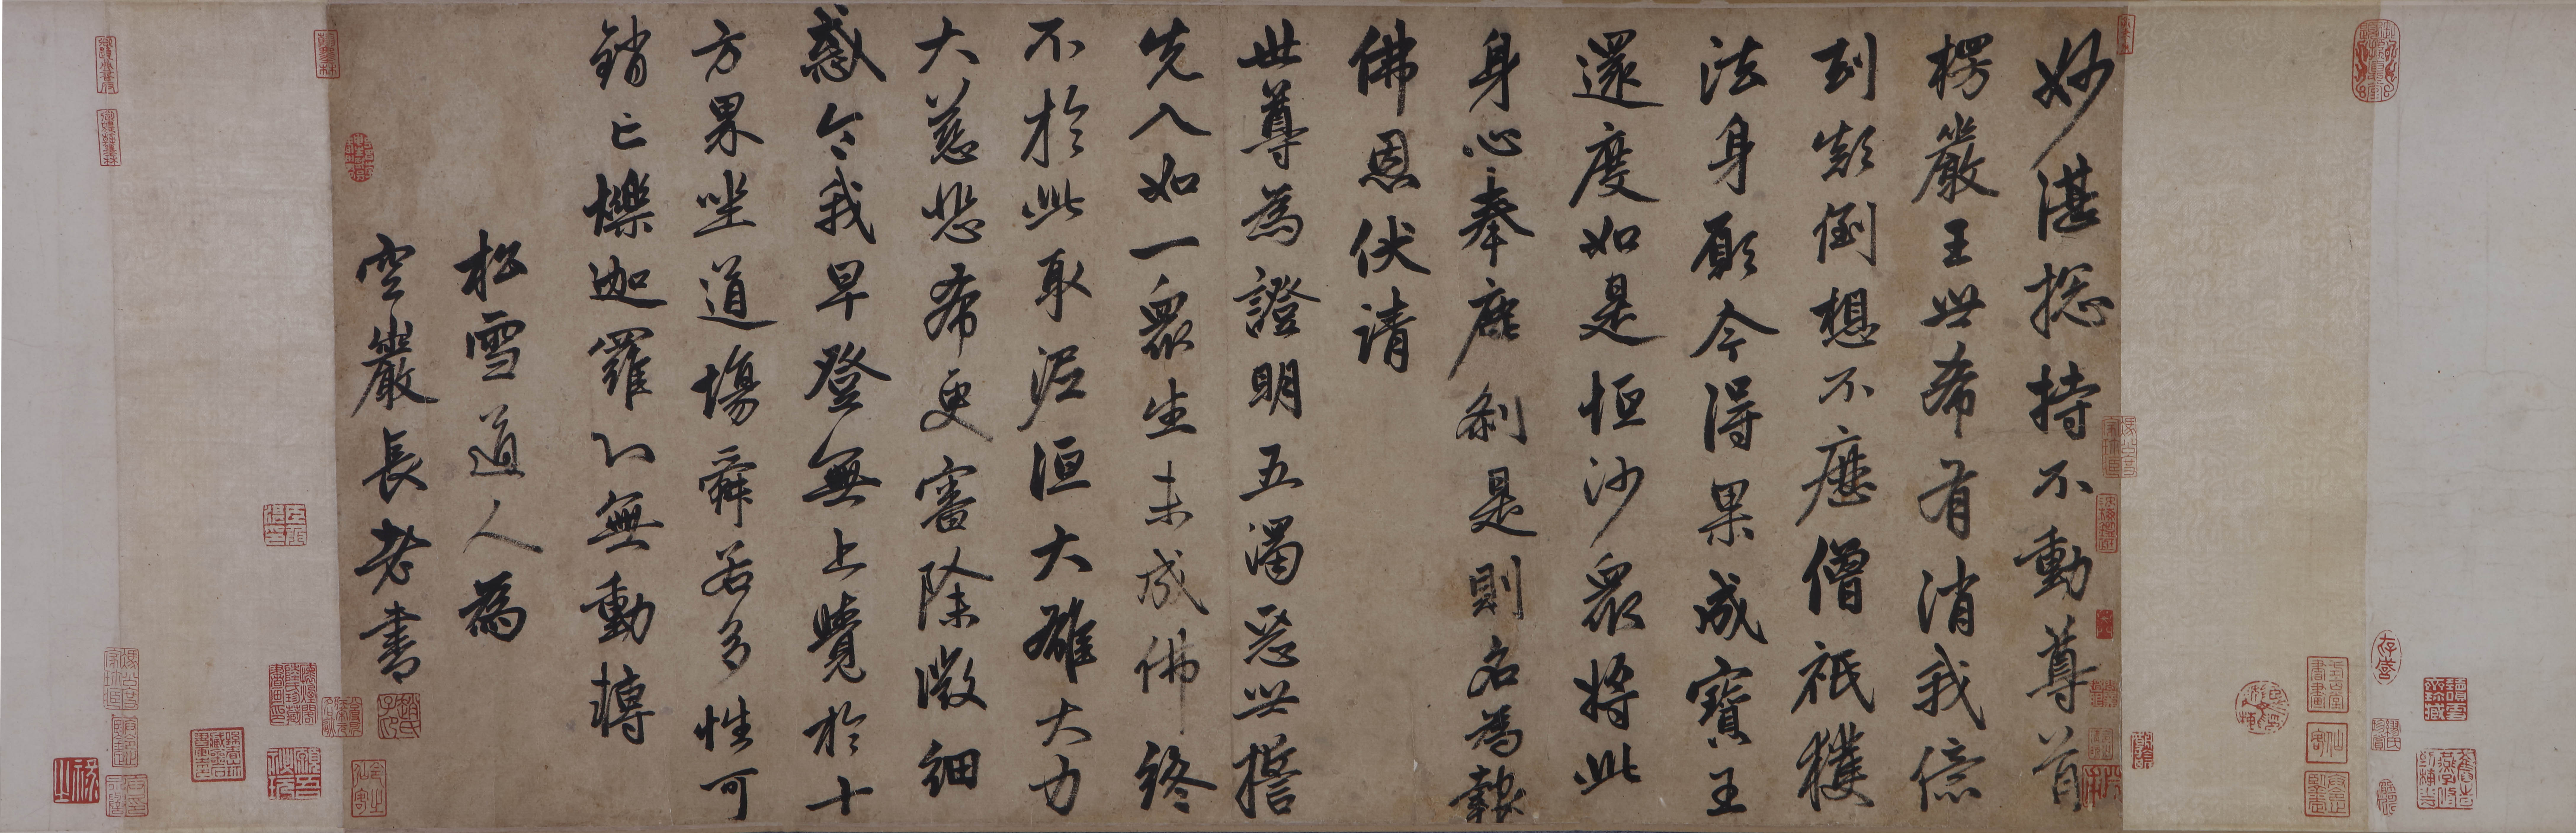 妙湛捴持不動尊首
楞嚴王世希有消我億
劫顛倒想不歷僧祇獲
法身願今得果成寶王
還度如是恒沙衆將此
身心奉塵刹是則名為報
佛恩伏請
世尊為證明五濁惡世誓
先入如一衆生未成佛終
不於此取泥洹大雄大力
大慈悲希更審除微細
惑令我早登無上覺於十
方界坐道場舜若多性可
銷亡爍迦羅心無動轉
松雪道人為
空巖長老書